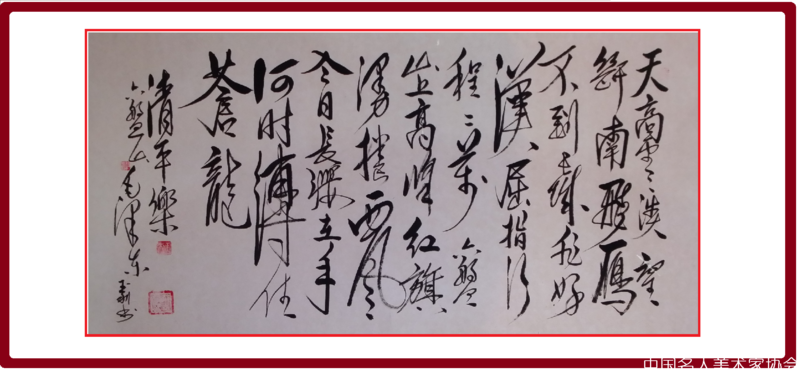 天高雲淡望
斷南飛雁
不到長城非好
漢屈指行
程二萬六盤
山上高峰红旗
漫捲西风
今日長纓在手
何时縛住
蒼龍
清平樂
六盤山毛泽东
书
中国名人美术家协会